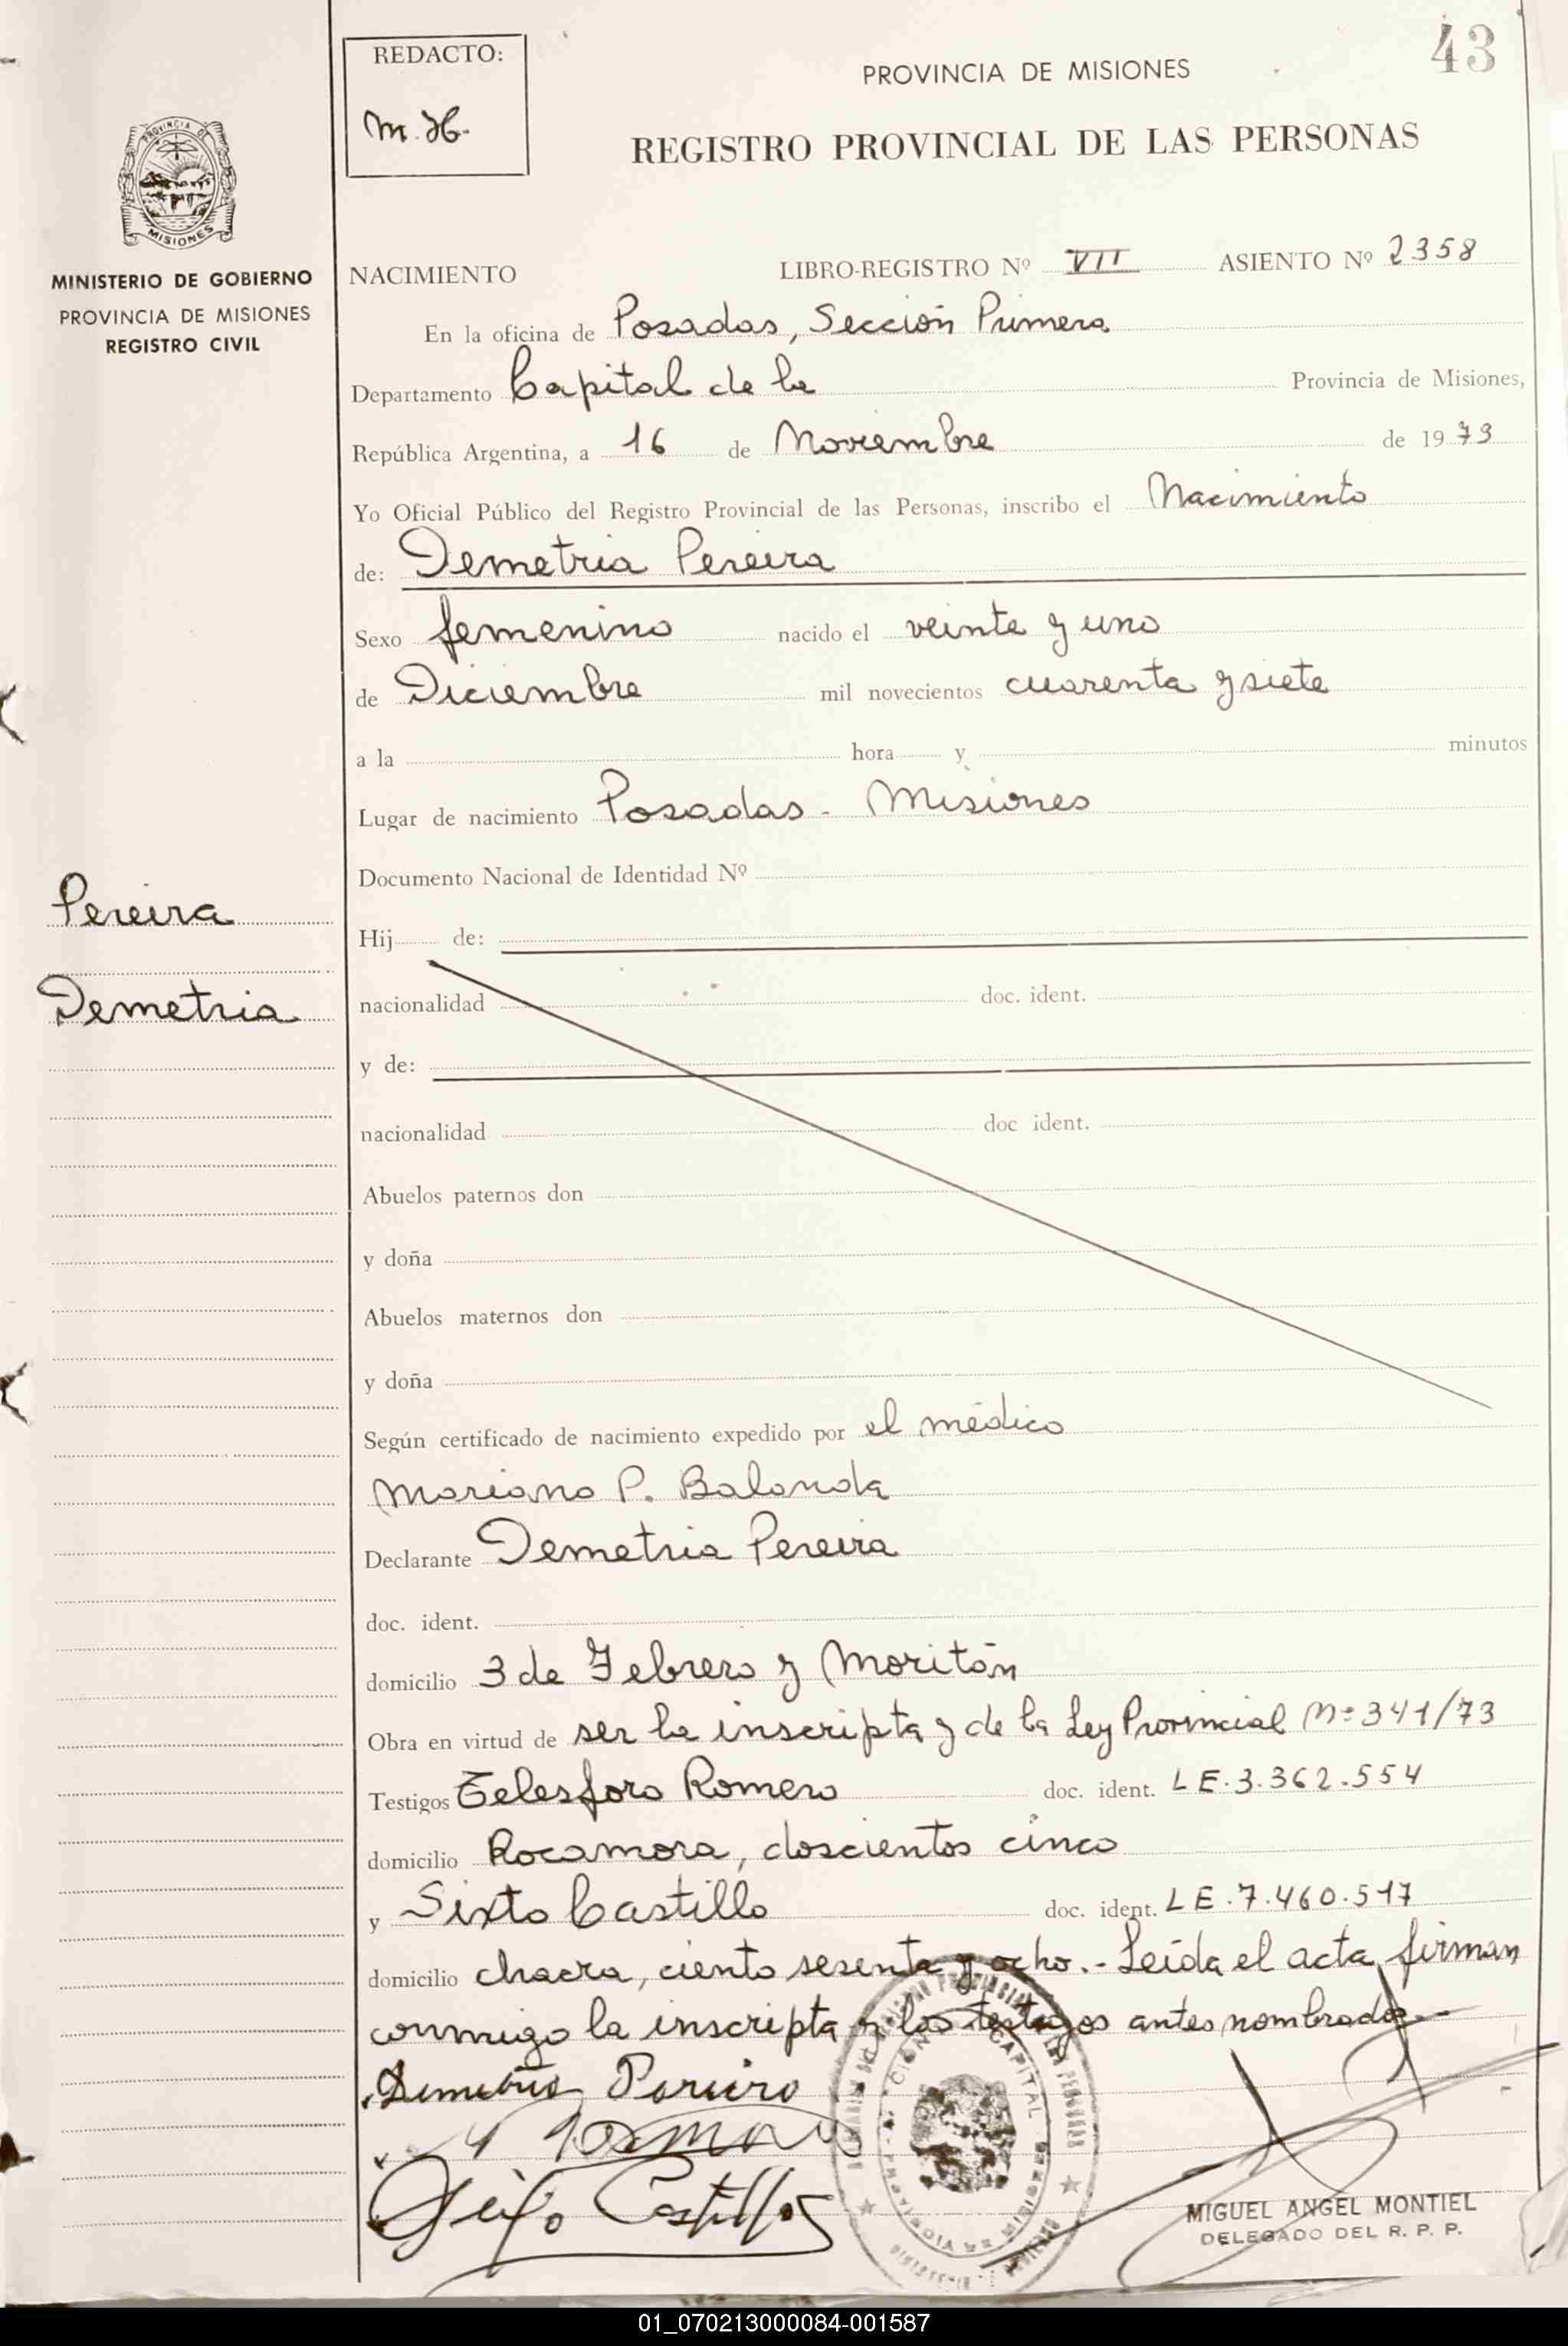 43
REDACTO:
M. H.
PROVINCIA DE MISIONES
REGISTRO PROVINCIAL DE LAS PERSONAS
PROVINCIA DE
MISIONES
MINISTERIO DE GOBIERNO
PROVINCIA DE MISIONES
REGISTRO CIVIL
NACIMIENTO LIBRO-REGISTRO Nº VII ASIENTO Nº 2358
En la oficina de Posadas, Sección Primera
Departamento Capital de la Provincia de Misiones,
República Argentina, a 16 de Noviembre de 1973
Yo Oficial Público del Registro Provincial de las Personas, inscribo el Nacimiento
de: Demetria Pereira
Sexo femenino nacido el veinte y uno
de Diciembre mil novecientos cuarenta y siete
a la hora y minutos
Lugar de nacimiento Posadas - Misiones
Documento Nacional de Identidad Nº
Pereira
Demetria
Hij de:
nacionalidad doc. ident.
y de:
nacionalidad doc ident.
Abuelos paternos don
y doña
Abuelos maternos don
y doña
Según certificado de nacimiento expedido por el médico
Mariano P. Balanda
Declarante Demetria Pereira
doc. ident.
domicilio 3 de Febrero y Moritán
Obra en virtud de ser la inscripta y de la Ley Provincial Nº 341/73
Testigos Telesforo Romero doc. ident. LE.3.362.554
domicilio Rocamora, doscientos cinco
y Sixto Castillo doc. ident. LE.7.460.517
domicilio chacra, ciento sesenta y ocho.- Leída el acta, firman
conmigo la inscripta y los testigos antes nombrados.-
Castillo
CAPITAL
MIGUEL ANGEL MONTIEL
DELEGADO DEL R. P. P.
01_070213000084-001587